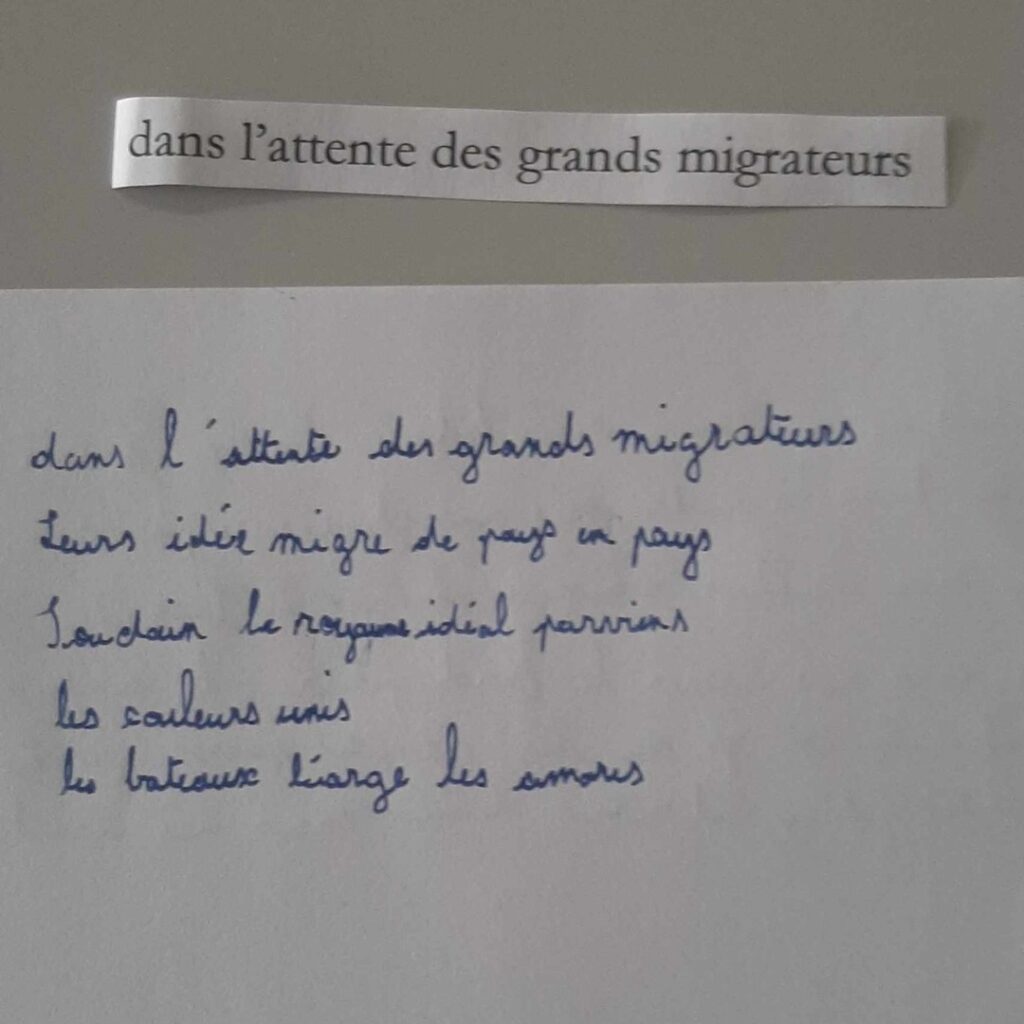 dans l'attente des grands migrateurs
dans l'attente des grands migrateurs
Leurs idée migre de pays en pays
Soudain le royaume idéal parviens
les couleurs unis
les bateaux les